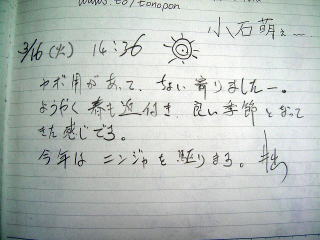 www.to/tonopon
小石萌ぇ〜
3/16(火) 14:36
ヤボ用があって、ちょい寄りましたー。
ようやく春も近付き、良い季節となって
きた感じでる。
今年はニンジャを駆りまる。